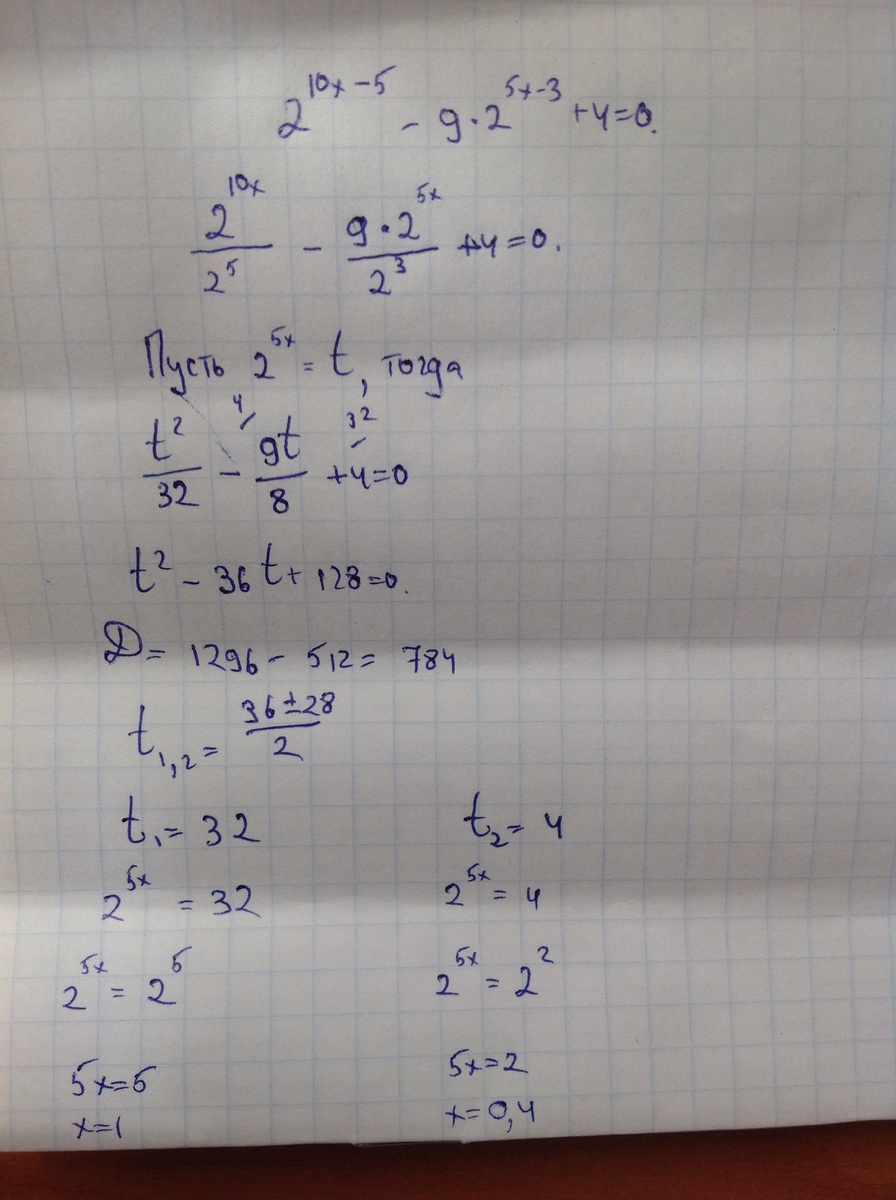 2^{10x-5} - 9·2^{5x-3} + 4=0.
2^{10x}/2^5 - 9·2^{5x}/2^3 + 4=0.
Пусть 2^{5x} = t, тогда
t^2/32 - ^{4/} 9t/8 + ^{32/} 4=0
t^2 - 36t + 128=0.
D = 1296 - 512 = 784
t_{1,2} = (36±28)/2
t_1 = 32 t_2 = 4
2^{5x} = 32 2^{5x} = 4
2^{5x} = 2^5 2^{5x} = 2^2
5x=5 5x=2
x=1 x=0,4